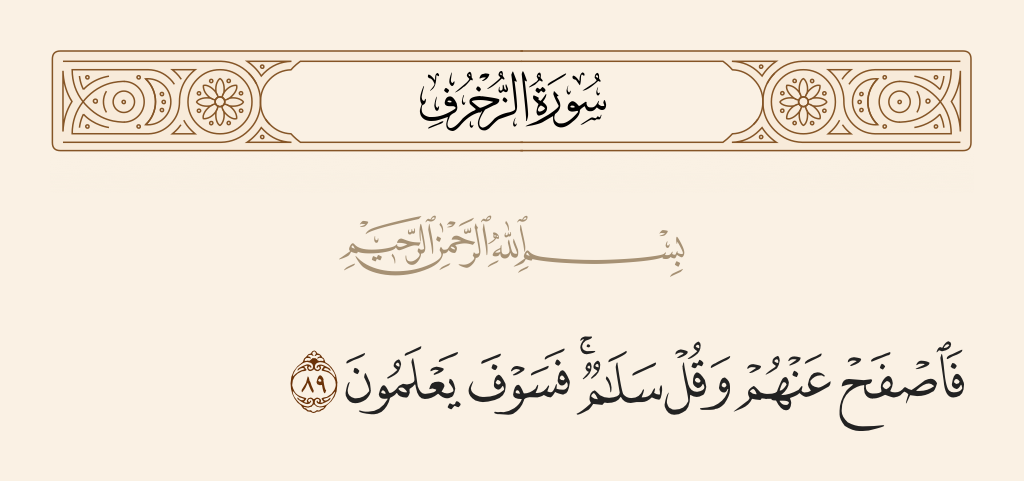 سُورَةُ الزُّخْرُفِ
بِسْمِ ٱللَّهِ ٱلرَّحْمَٰنِ ٱلرَّحِيمِ
فَٱصْفَحْ عَنْهُمْ وَقُلْ سَلَٰمٌۭ ۚ فَسَوْفَ يَعْلَمُونَ ٨٩